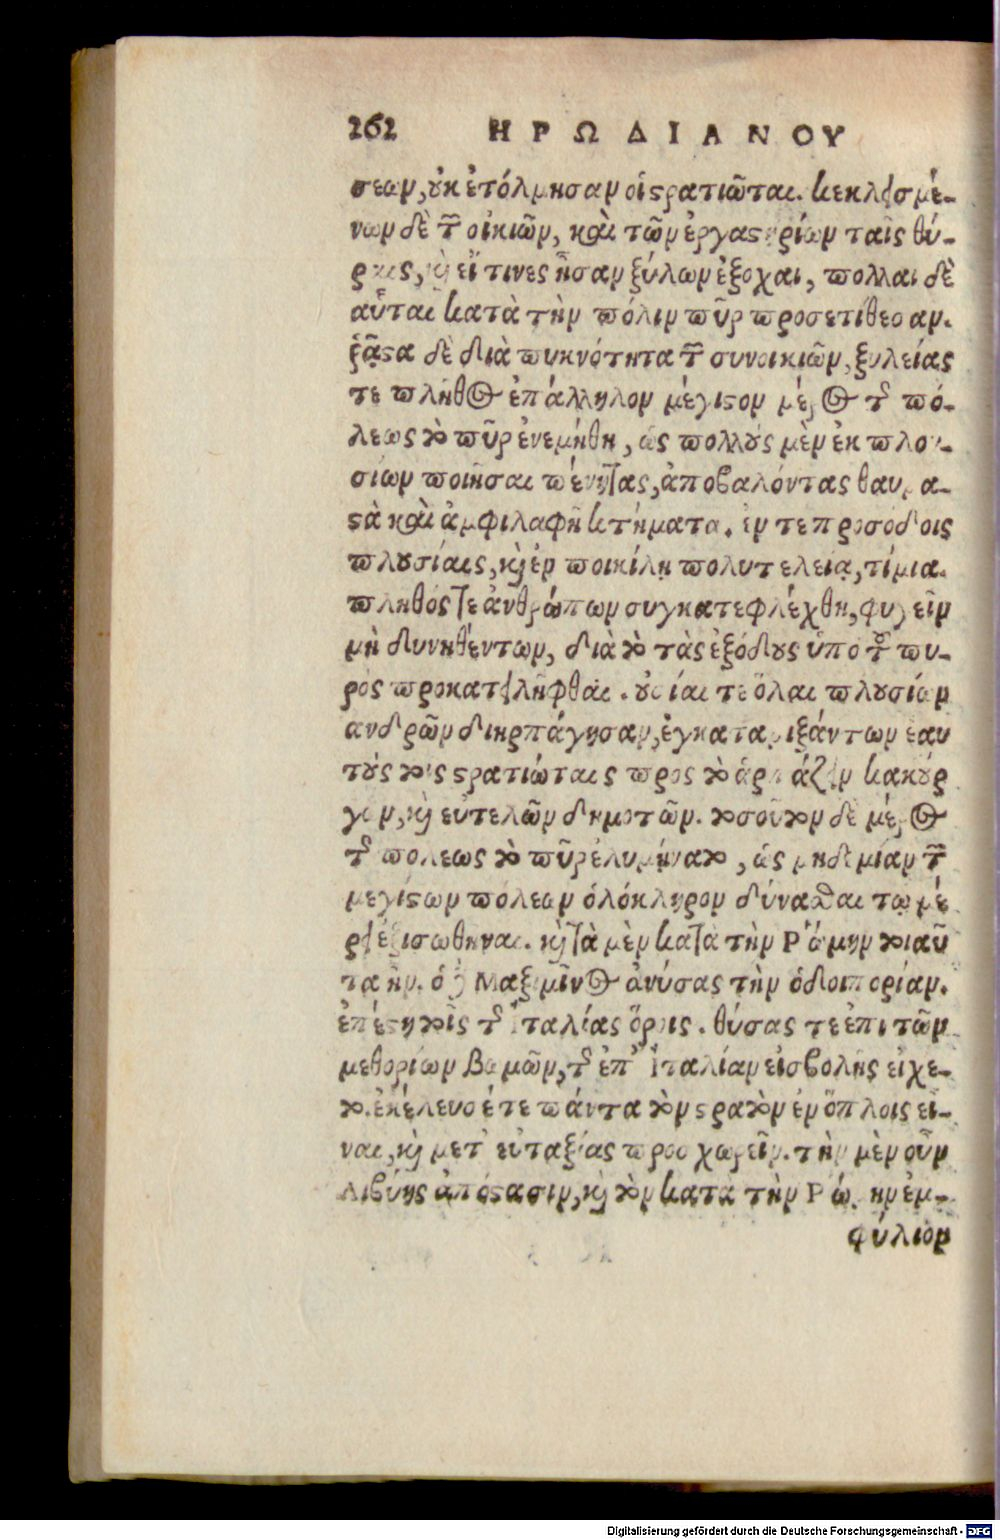 262 ΗΡΩΔΙΑΝΟΥ
σεων, οὐκ ἐτόλμησαν οἱ στρατιῶται. κεκλεισμέ-
νων δὲ τῶν οἰκιῶν, καὶ τῶν ἐργαστηρίων ταῖς θύ-
ραις, καὶ εἴ τινες ἦσαν ξύλων ἐξοχαι, πολλαι δὲ
αὗται κατὰ τὴν πόλιν πῦρ προσετίθεσαν.
ῥᾷστα δὲ διὰ πυκνότητα τῶν συνοικιῶν, ξυλείας
τε πλῆθος ἐπάλληλον μέγιστον μέρος τῆς πό-
λεως τὸ πῦρ ἐνεμήθη, ὡς πολλοὺς μὲν ἐκ πλου-
σίων ποιῆσαι πένητας, ἀποβαλόντας θαυμα-
στὰ καὶ ἀμφιλαφῆ κτήματα. ἐν τε προσόδοις
πλουσίαις, καὶ ἐν ποικίλῃ πολυτελείᾳ, τίμια.
πλῆθός τε ἀνθρώπων συγκατεφλέχθη, φυγεῖν
μὴ δυνηθέντων, διὰ τὸ τὰς ἐξόδους ὑπὸ τοῦ πυ-
ρὸς προκατειλῆφθαι. οὐσίαι τε ὅλαι πλουσίων
ανδρῶν διηρπάγησαν, ἐγκαταμιξάντων ἑαυ
τοὺς τοις στρατιώταις προς τὸ ἁρπάζειν κακούρ
γων, καὶ εὐτελῶν δημοτῶν. τοσοῦτον δὲ μέρος
τῆς πολεως τὸ πῦρ ἐλυμήνατο, ὡς μηδεμίαν τῶν
μεγίστων πόλεων ὁλόκληρον δύνασθαι τῳ μέ
ρει ἐξισωθηναι. καὶ τὰ μὲν κατὰ τὴν Ῥώμην τοιαῦ
τα ἦν. ὁ δὲ Μαξιμῖνος ἀνύσας τὴν ὁδοιπορίαν.
ἐπέστη τοῖς τῆς Ἰταλίας ὅροις. θύσας τε ἐπι τῶν
μεθορίων βωμῶν, τῆς ἐπ' Ἰταλίαν εἰσβολῆς εἴχε-
το. ἐκέλευσέ τε πάντα τὸν στρατὸν ἐν ὅπλοις εἶ-
ναι, καὶ μετ' εὐταξίας προσχωρεῖν. τὴν μὲν οὖν
Λιβύης ἀπόστασιν, καὶ τὸν κατα τὴν Ῥώμην ἐμ-
φύλιον
Digitalisierung gefördert durch die Deutsche Forschungsgemeinschaft - DFG